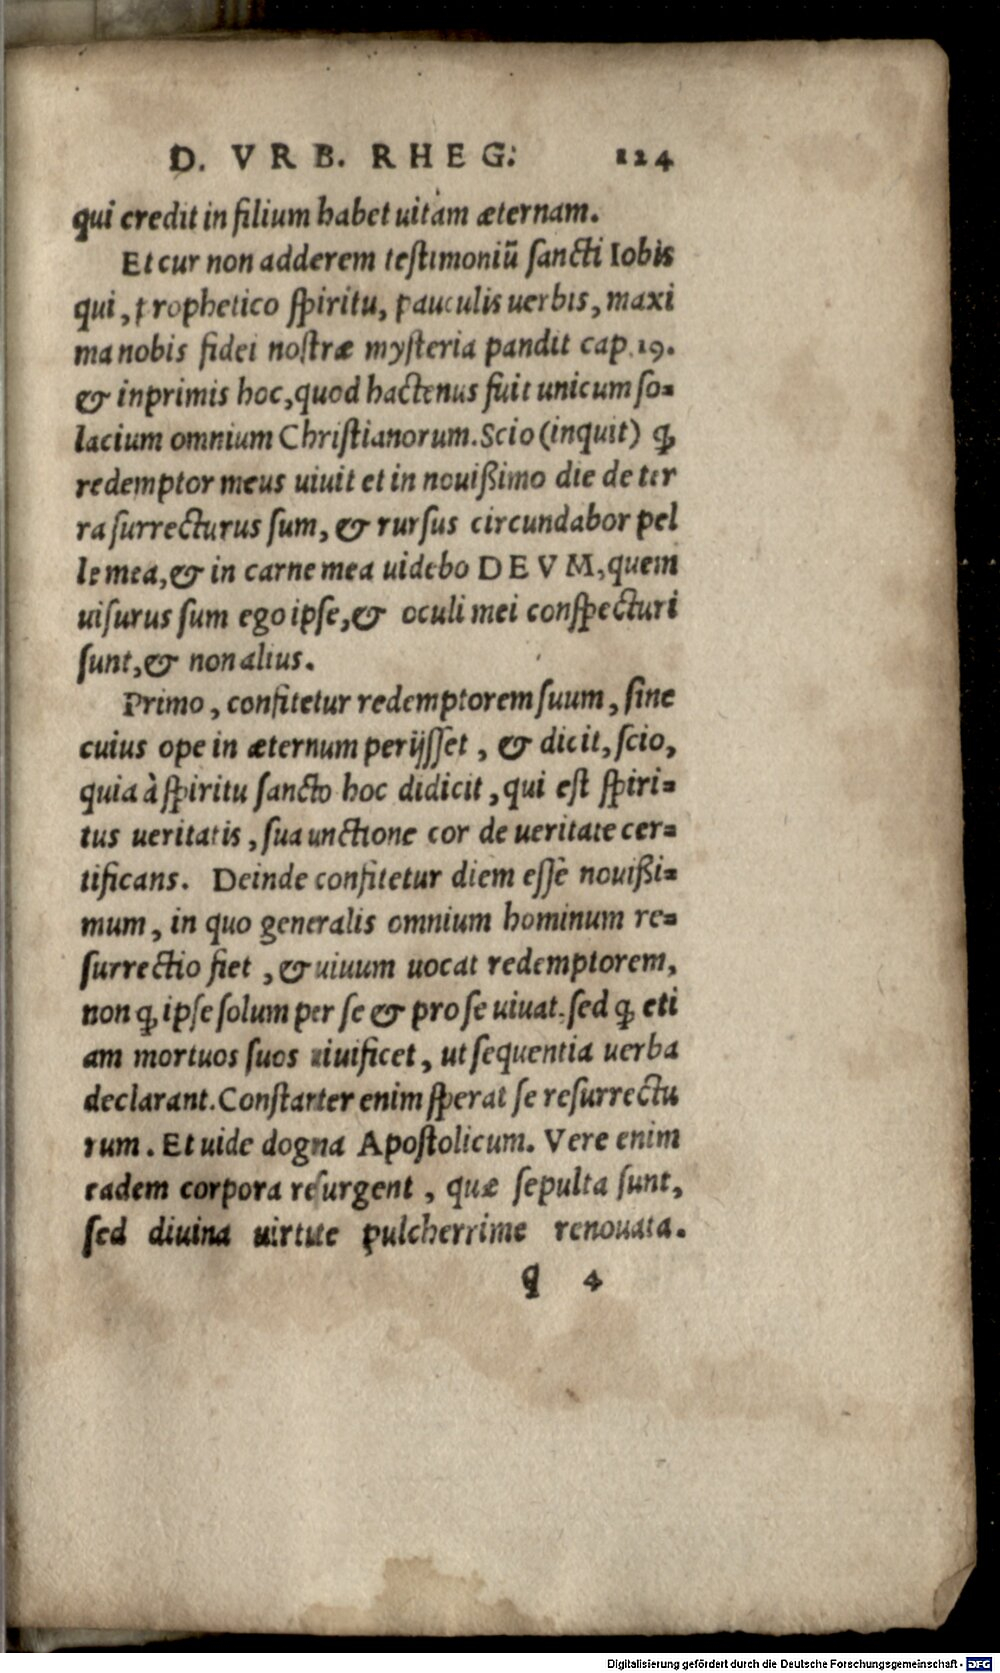 D. VRB. RHEG. 124
qui credit in filium habet uitam æternam.
Et cur non adderem testimoniũ sancti Iobis
qui, prophetico spiritu, pauculis uerbis, maxi
ma nobis fidei nostræ mysteria pandit cap. 19.
& inprimis hoc, quod hactenus fuit unicum so=
lacium omnium Christianorum. Scio (inquit) ꝙ
redemptor meus uiuit et in nouißimo die de ter
ra surrecturus sum, & rursus circundabor pel
le mea, & in carne mea uidebo DEVM, quem
uisurus sum ego ipse, & oculi mei conspecturi
sunt, & non alius.
Primo, confitetur redemptorem suum, sine
cuius ope in æternum perijsset, & dicit, scio,
quia à spiritu sancto hoc didicit, qui est spiri=
tus ueritatis, sua unctione cor de ueritate cer=
tificans. Deinde confitetur diem esse nouißi=
mum, in quo generalis omnium hominum re=
surrectio fiet, & uiuum uocat redemptorem,
non ꝙ ipse solum per se & pro se uiuat. sed ꝙ eti
am mortuos suos uiuificet, ut sequentia uerba
declarant. Constarter enim sperat se resurrectu
rum. Et uide dogna Apostolicum. Vere enim
eadem corpora resurgent, quæ sepulta sunt,
sed diuina uirtute pulcherrime renouata.
q 4
Digitalisierung gefördert durch die Deutsche Forschungsgemeinschaft - DFG